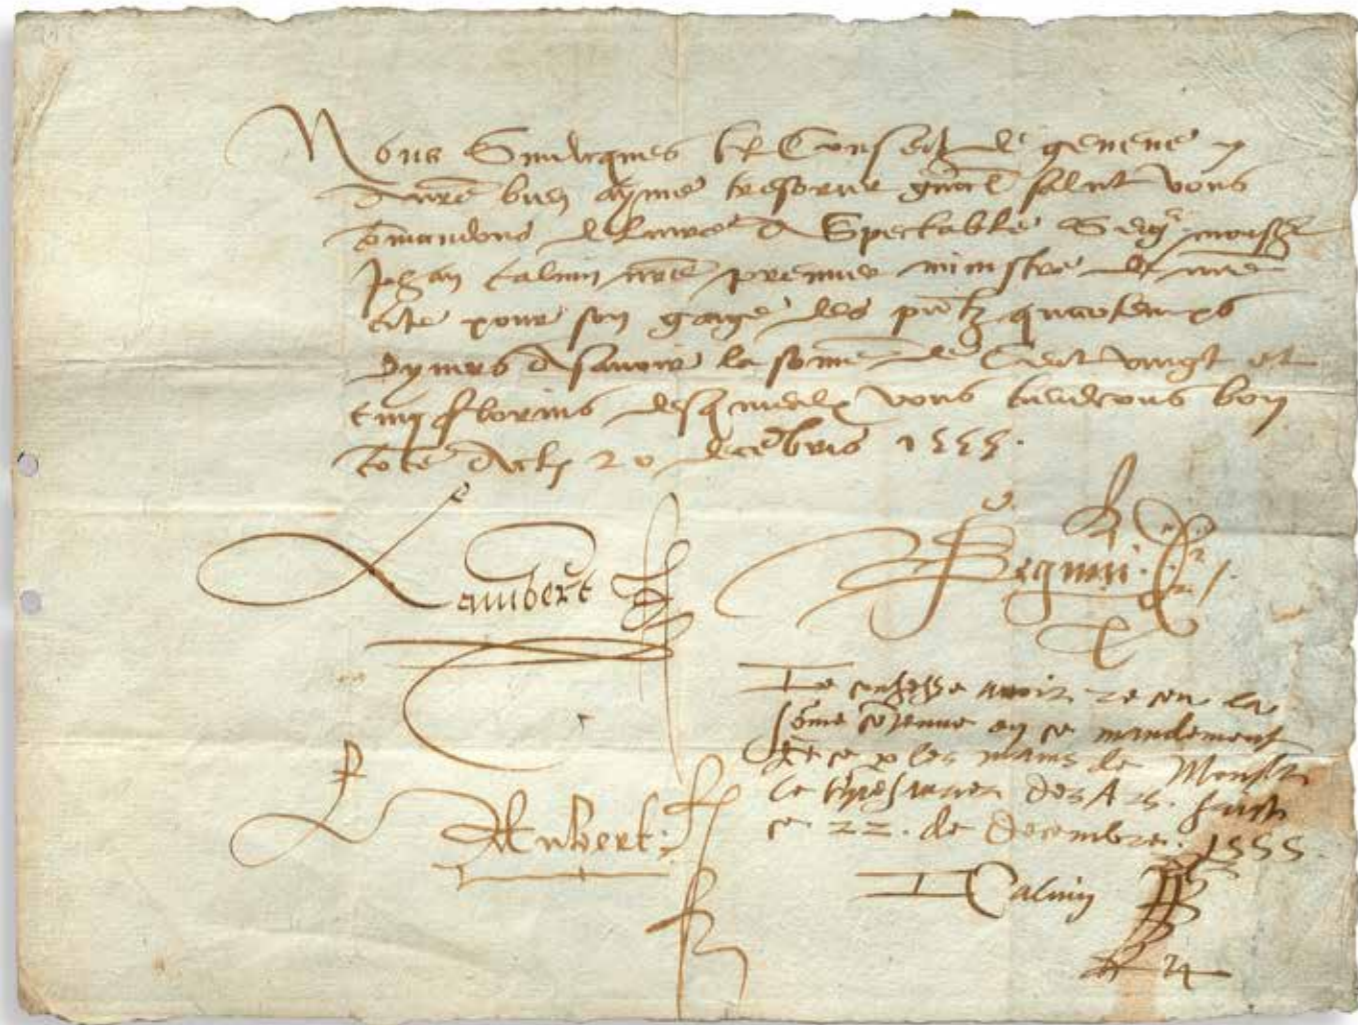 Nous Sindicques et Conseil de geneve
A nre bien ayme tresorier gnal salut vous
comandons de livre a Spectable Segr
Jehan calvin nre premier ministre de nre
cite pour son gage des pntz quartemps
dyvers Asavoir la some de Cent vingt et
cinq florins desquieulx vous tiendrons bon
cote Acth 20 decebris 1555.
Lambert
Je confesse avoir receu la
some cotenue en ce mandement
et ce p les mains de Monsr
le thresaurier Des Ars. faict
ce 22. de Decembre. 1555
Aubert
J Calvin